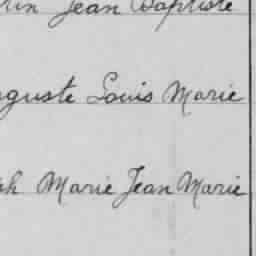 Jean Baptiste
Louis Marie
Marie Jean Marie